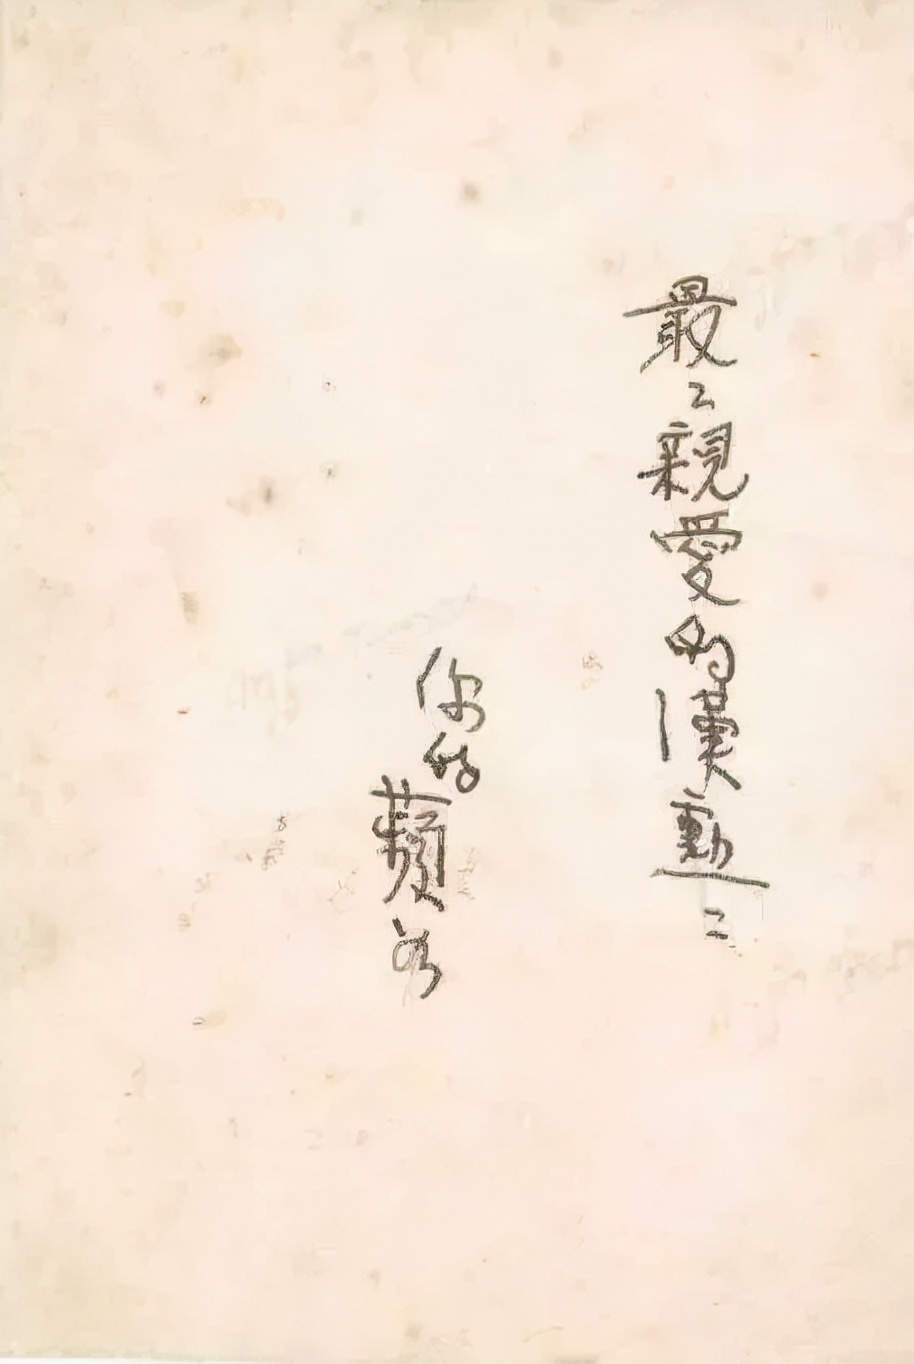 最々親愛的漢勳々
你的蘋